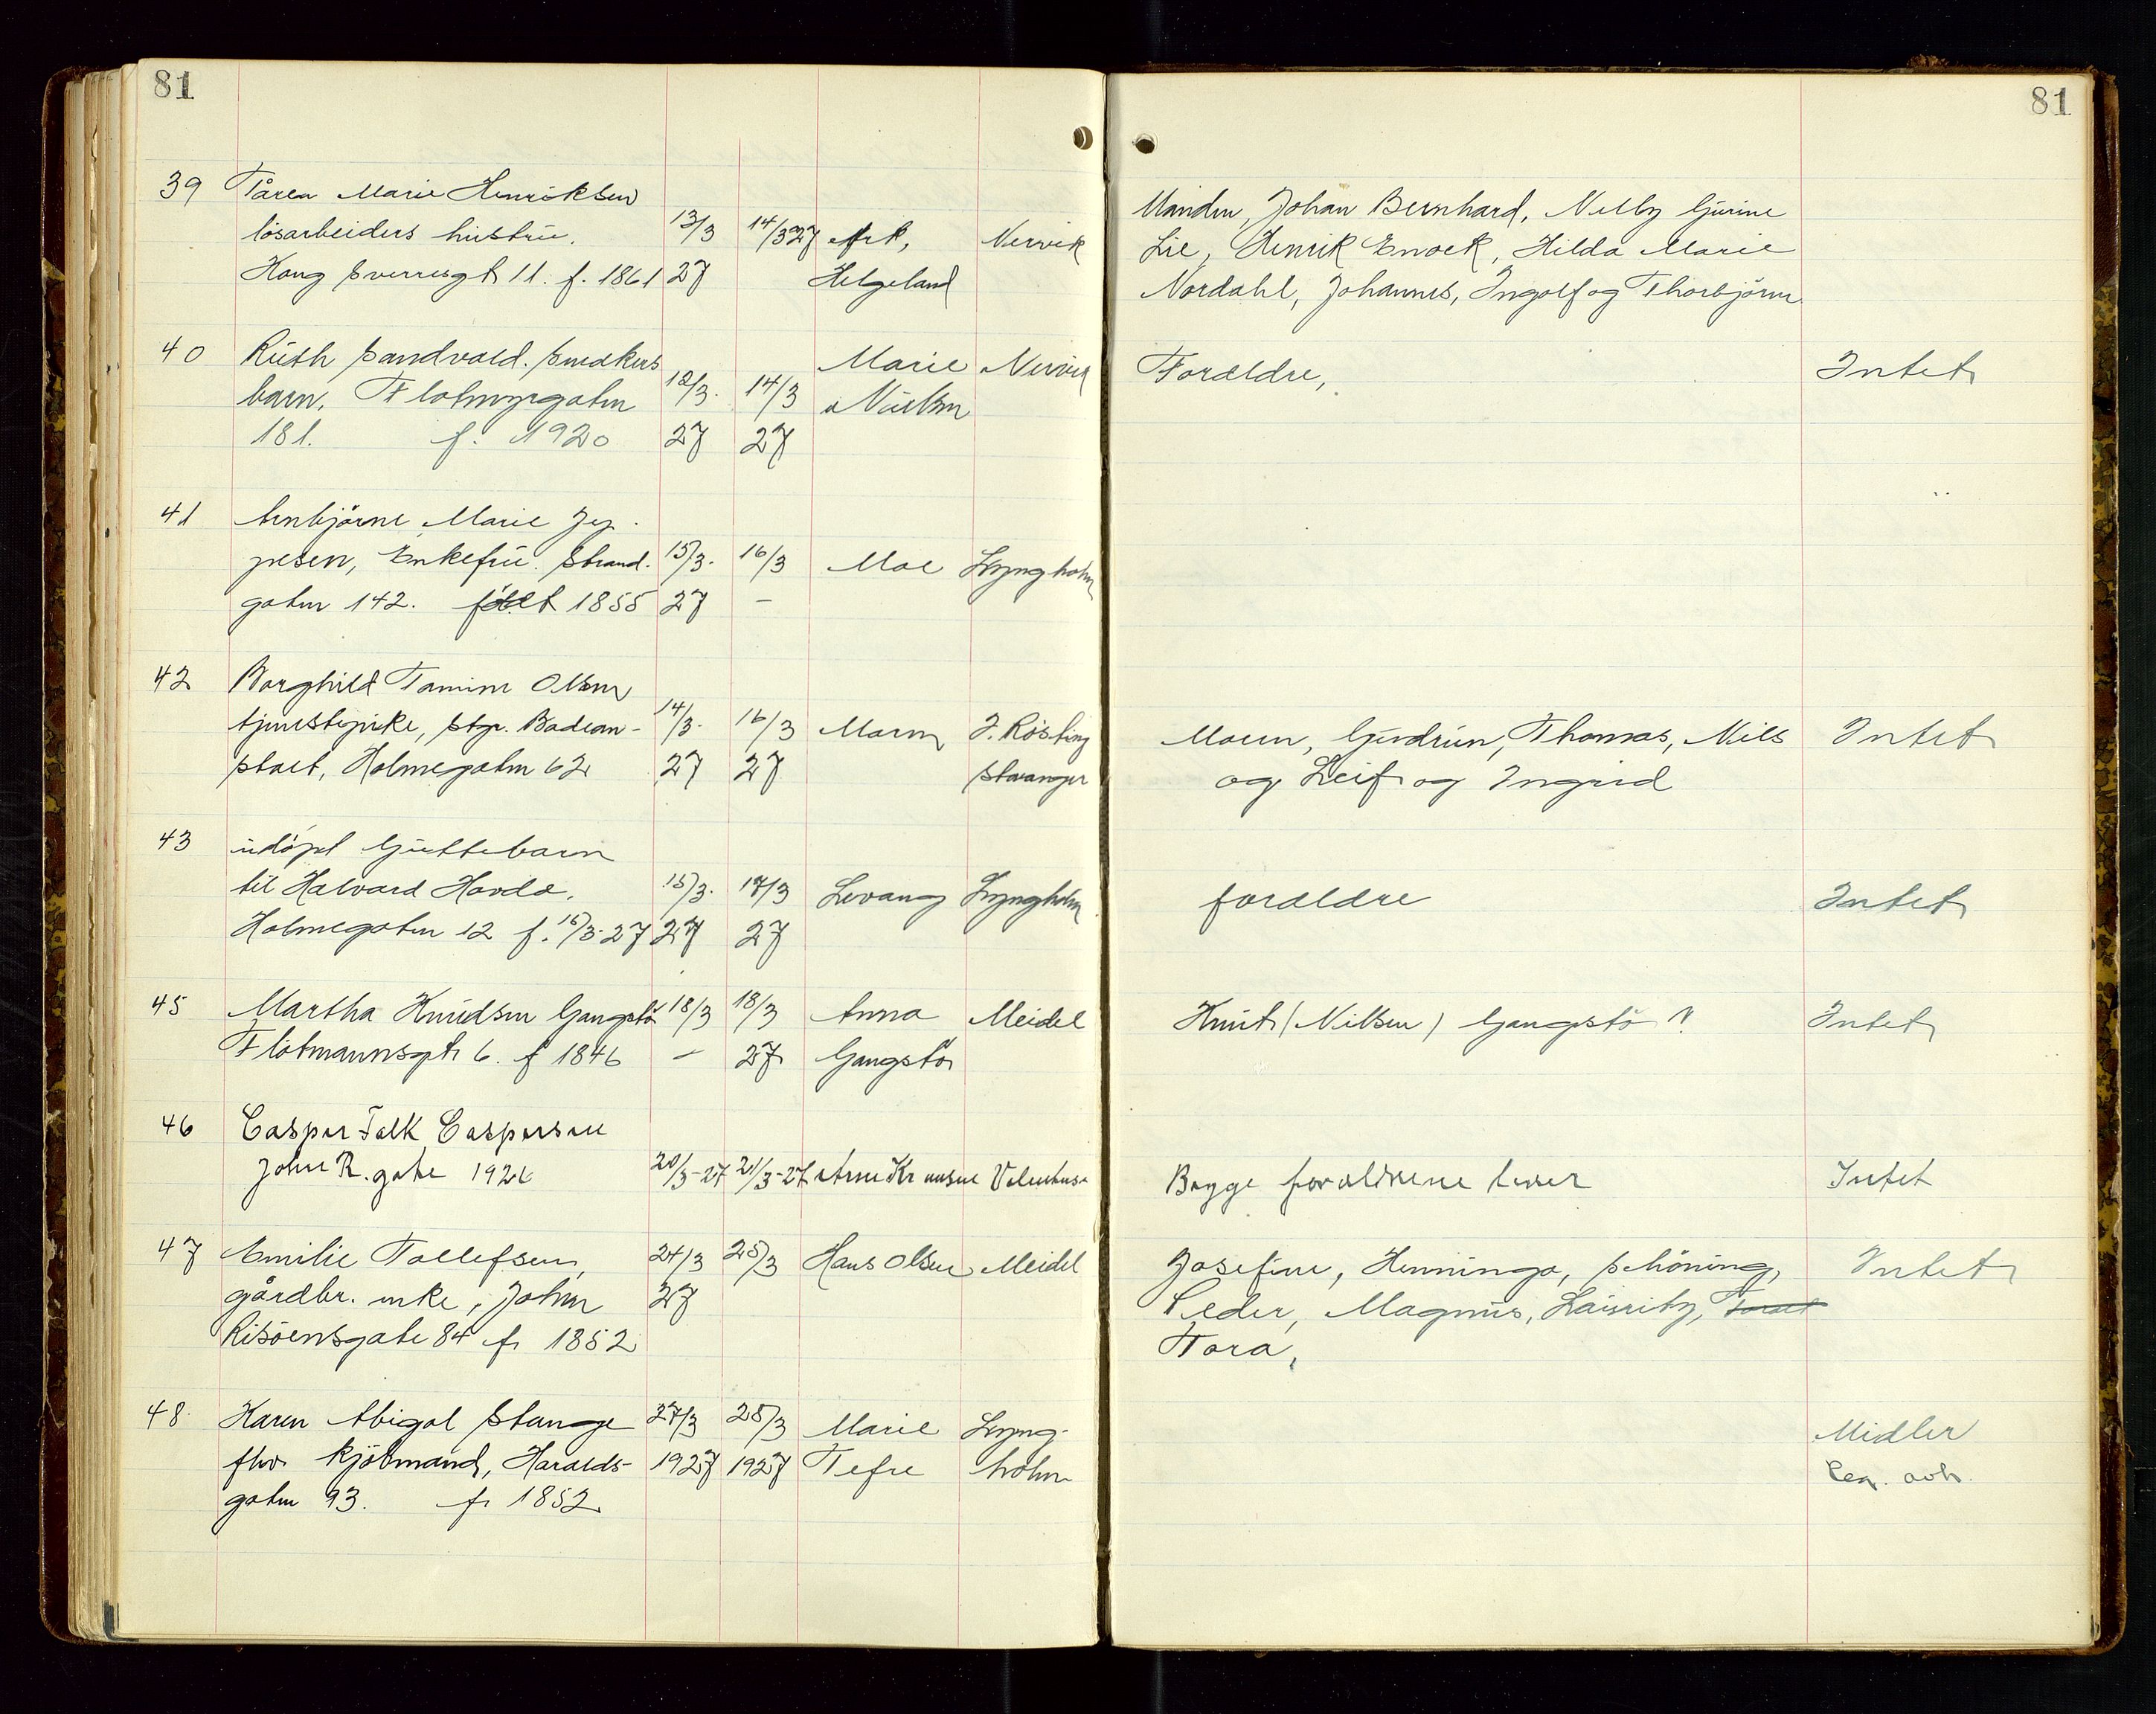 81
81
39 Tårea Marie Henriksen
løsarbeiders hustru. 13/3 14/3 27 Ark, Nervik
Kong Sverresgt 11. f. 1861 27 Helgeland
Manden, Johan Bernhard, Nelly Gurine
Lie, Henrik Enock, Hilda Marie
Nordahl, Johannes, Ingolf og Thorbjørn
40 Ruth Sandvold. Snedkers Marie Nervik
barn, Flotmyrgaten 12/3. 14/3 Nielsen
181. f. 1920 27 27
Forældre, Intet
41 Arnbjørne Marie Jep-
pesen, Enkefru. Strand- 15/3. 16/3 Moe Lyngholm
gaten 142. født 1855 27 –
42 Borghild Tamine Olsen
tjenestepike, Stgr. Badean- 14/3. 16/3 Moren J. Røsting
stalt, Holmegaten 62 27 27 Stavanger
Moren, Gudrun, Thomas, Nils Intet
og Leif og Ingrid
43 udøpt Guttebarn
til Halvard Havda. 15/3. 17/3 Levang Lyngholm
Holmegaten 12 f. 15/3-27 27 27
forældre Intet
45 Martha Knudsen Gangstø 18/3 18/3 Anna Meidel
Flotmannsgt 6. f 1846 – 27 Gangstø
Knut (Nilsen) Gangstø ? Intet
46 Casper Falk Caspersen
John R. gate 1926 20/3-27 21/3-27 Arne Kr
Begge forældrene lever Intet
47 Emilie Tollefsen, 24/3 25/3 Hans Olsen Meidel
gårdbr. enke, John 27
Risøensgate 84 f. 1852
Josefine, Henninga, Schöning, Intet
Peder, Magnus, Lauritz,
Tora,
48 Karen Abigal Stange 27/3 28/3 Marie Lyng-
fhv. Kjøbmand, Haralds- 1927 1927 Tefre holm
gaten 93. f. 1852
Midler